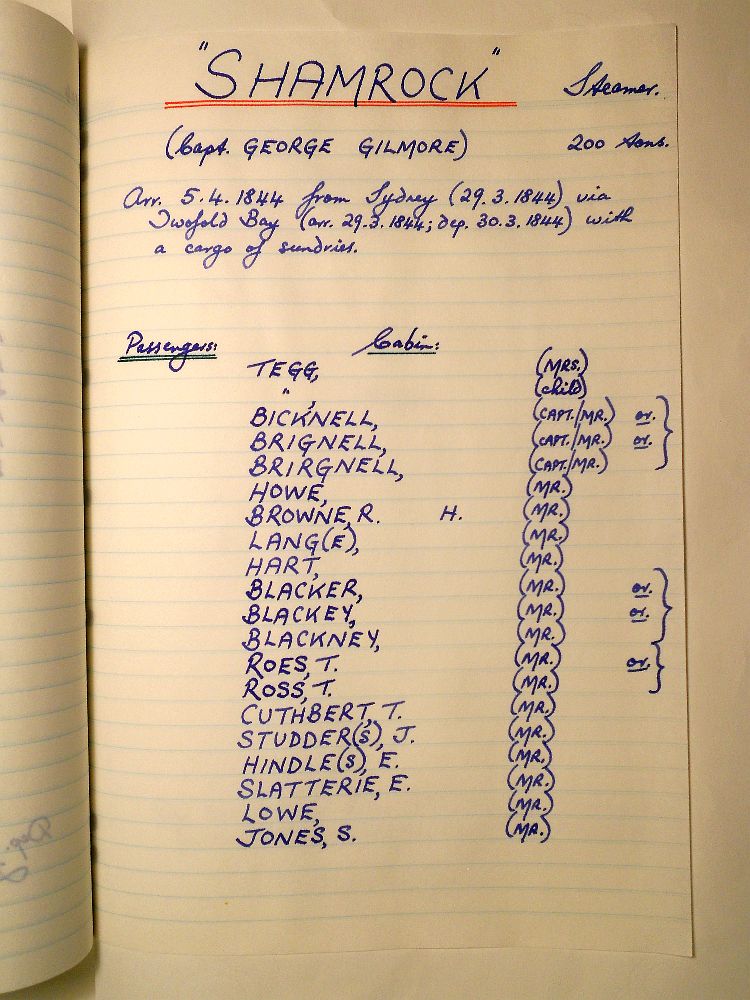 "SHAMROCK" Steamer.
(Capt. GEORGE GILMORE) 200 tons.
Arr. 5.4.1844 from Sydney (29.3.1844) via
Twofold Bay (arr. 29.3.1844; dep. 30.3.1844) with
a cargo of sundries.
Passengers: Cabin:
TEGG, (MRS.)
" , (child)
BICKNELL, (CAPT./MR.) or.
BRIGNELL, (CAPT./MR.) or.
BRIRGNELL, (CAPT./MR.)
HOWE, (MR.)
BROWNE, R. H. (MR.)
LANG(E), (MR.)
HART, (MR.)
BLACKER, (MR.) or.
BLACKEY, (MR.) or.
BLACKNEY, (MR.)
ROES, T. (MR.) or.
ROSS, T. (MR.)
CUTHBERT, T. (MR.)
STUDDER(S), J. (MR.)
HINDLE(S), E. (MR.)
SLATTERIE, E. (MR.)
LOWE, (MR.)
JONES, S. (MR.)